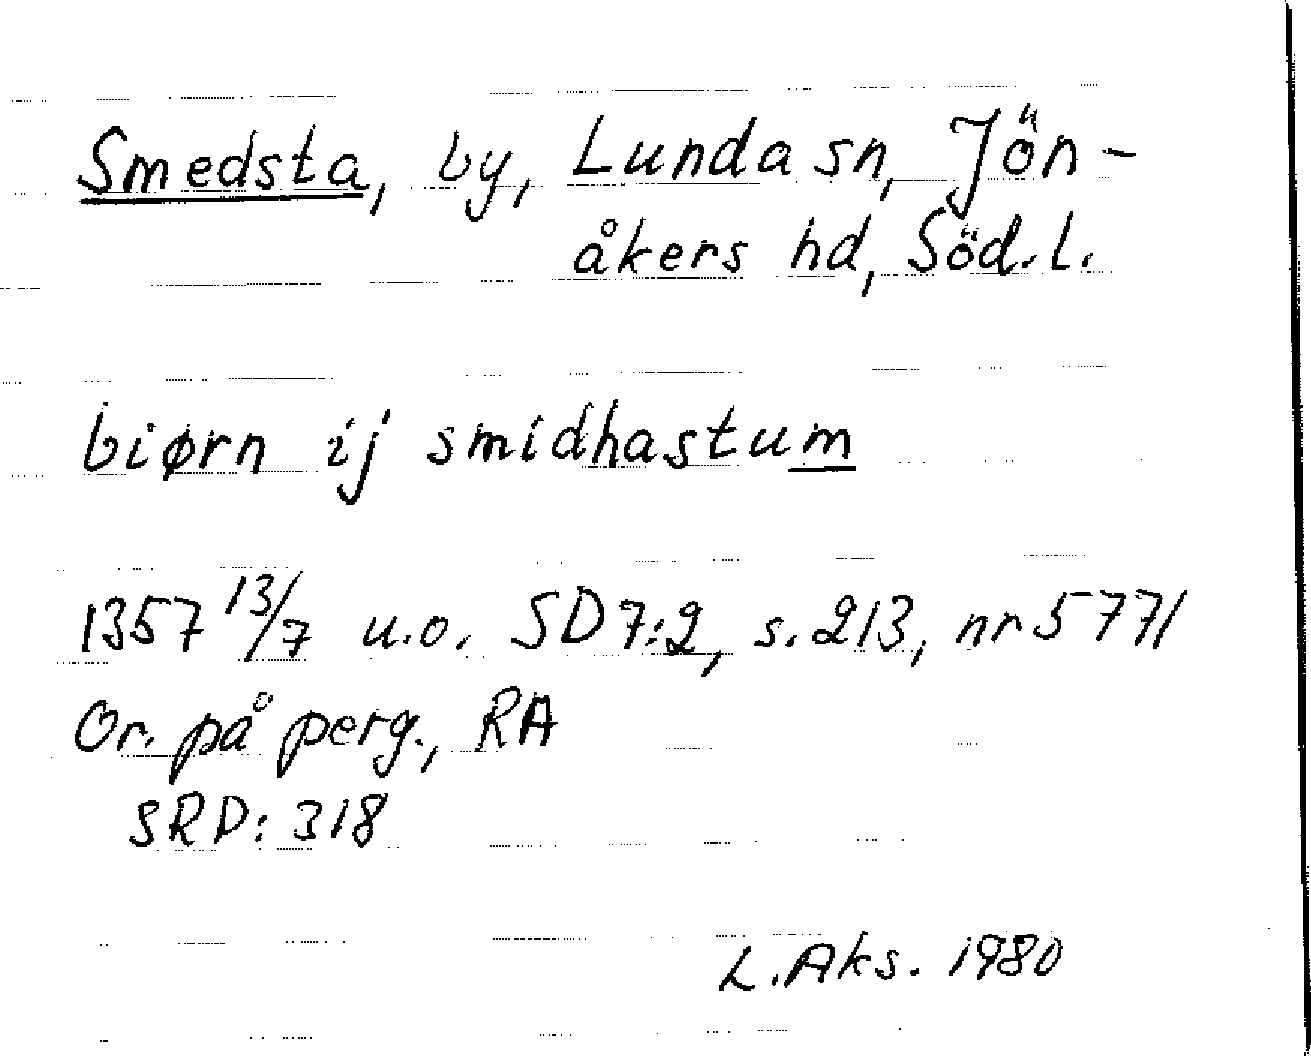 Smedsta, by, Lunda sn, Jön-
åkers hd, Söd.l.
biørn ij smidhastum
1357 13/7 u.o. SD 7:2, s. 213, nr 5771
Or. på perg., RA
SRD: 318
L. Aks. 1980